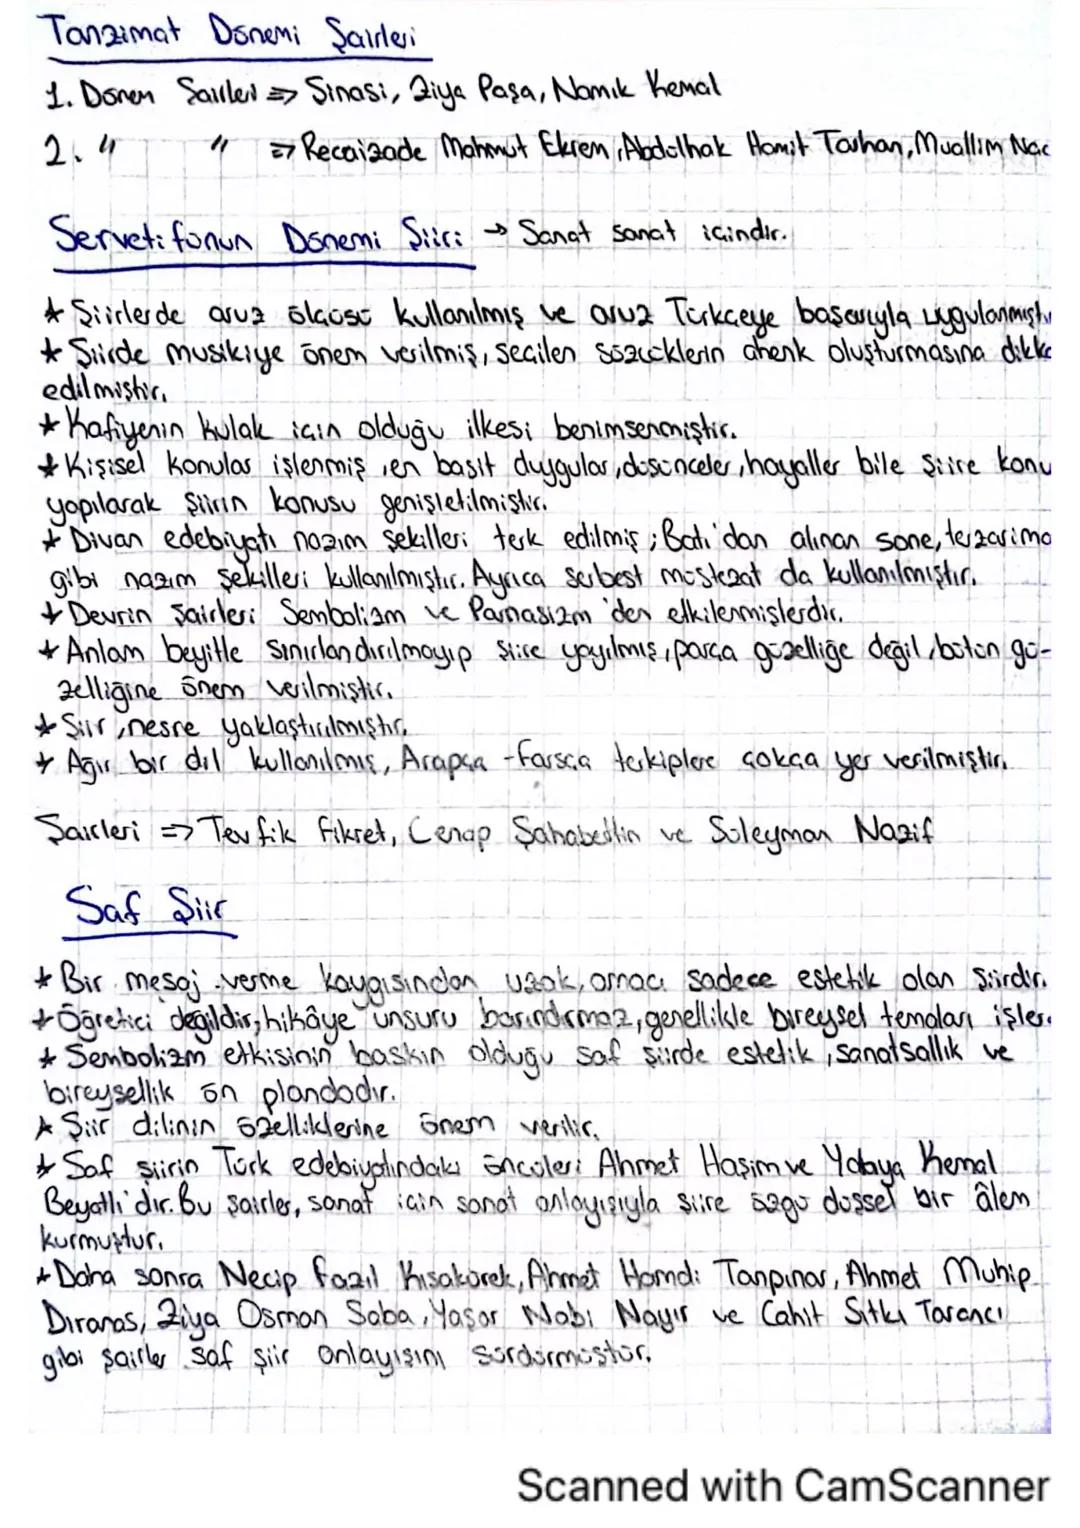 Tanzimat Dönemi Şairleri
1. Dönem Şairleri => Şinasi, Ziya Paşa, Namık Kemal
2. " " => Recaizade Mahmut Ekrem, Abdülhak Hamit Tarhan, Muallim Nac
Servetifünun Dönemi Şiiri → Sanat sanat içindir.
* Şiirlerde aruz ölçüsü kullanılmış ve aruz Türkçeye başarıyla uygulanmıştır
* Şiirde musikiye önem verilmiş, seçilen sözcüklerin ahenk oluşturmasına dikka
edilmiştir.
* Kafiyenin kulak için olduğu ilkesi benimsenmiştir.
* Kişisel konular işlenmiş, en basit duygular, düşünceler, hayaller bile şiire konu
yapılarak şiirin konusu genişletilmiştir.
* Divan edebiyatı nazım şekilleri terk edilmiş; Batı'dan alınan sone, terzarima
gibi nazım şekilleri kullanılmıştır. Ayrıca serbest müstezat da kullanılmıştır.
* Devrin şairleri Sembolizm ve Parnasizm'den etkilenmişlerdir.
* Anlam beyitle sınırlandırılmayıp şiire yayılmış, parça güzelliğe değil, bütün gü-
zelliğine önem verilmiştir.
* Şiir, nesre yaklaştırılmıştır.
* Ağır bir dil kullanılmış, Arapça-Farsça terkiplere çokça yer verilmiştir.
Şairleri => Tevfik Fikret, Cenap Şahabettin ve Süleyman Nazif
Saf Şiir
* Bir mesaj verme kaygısından uzak, amacı sadece estetik olan şiirdir.
* Öğretici değildir, hikâye unsuru barındırmaz, genellikle bireysel temaları işler.
* Sembolizm etkisinin baskın olduğu saf şiirde estetik, sanatsallık ve
bireysellik ön plandadır.
* Şiir dilinin özelliklerine önem verilir.
* Saf şiirin Türk edebiyatındaki öncüleri Ahmet Haşim ve Yahya Kemal
Beyatlı'dır. Bu şairler, sanat için sanat anlayışıyla şiire özgü düşsel bir âlem
kurmuştur.
* Daha sonra Necip Fazıl Kısakürek, Ahmet Hamdi Tanpınar, Ahmet Muhip
Dıranas, Ziya Osman Saba, Yaşar Nabi Nayır ve Cahit Sıtkı Tarancı
gibi şairler saf şiir anlayışını sürdürmüştür.
Scanned with CamScanner